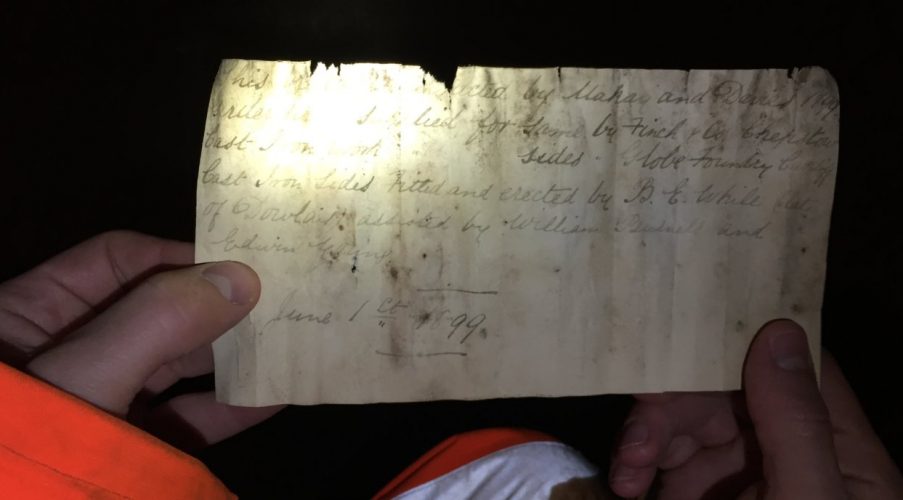 This erected by Mahar and Davis
Girders supplied for same by Finch & Co Chepstow
Cast Iron work sides - Globe Foundry Cardiff
Cast Iron Sides Fitted and erected by B. E. While
of Dowlais assisted by William Bushell and
Edwin Young
June 1st 1899